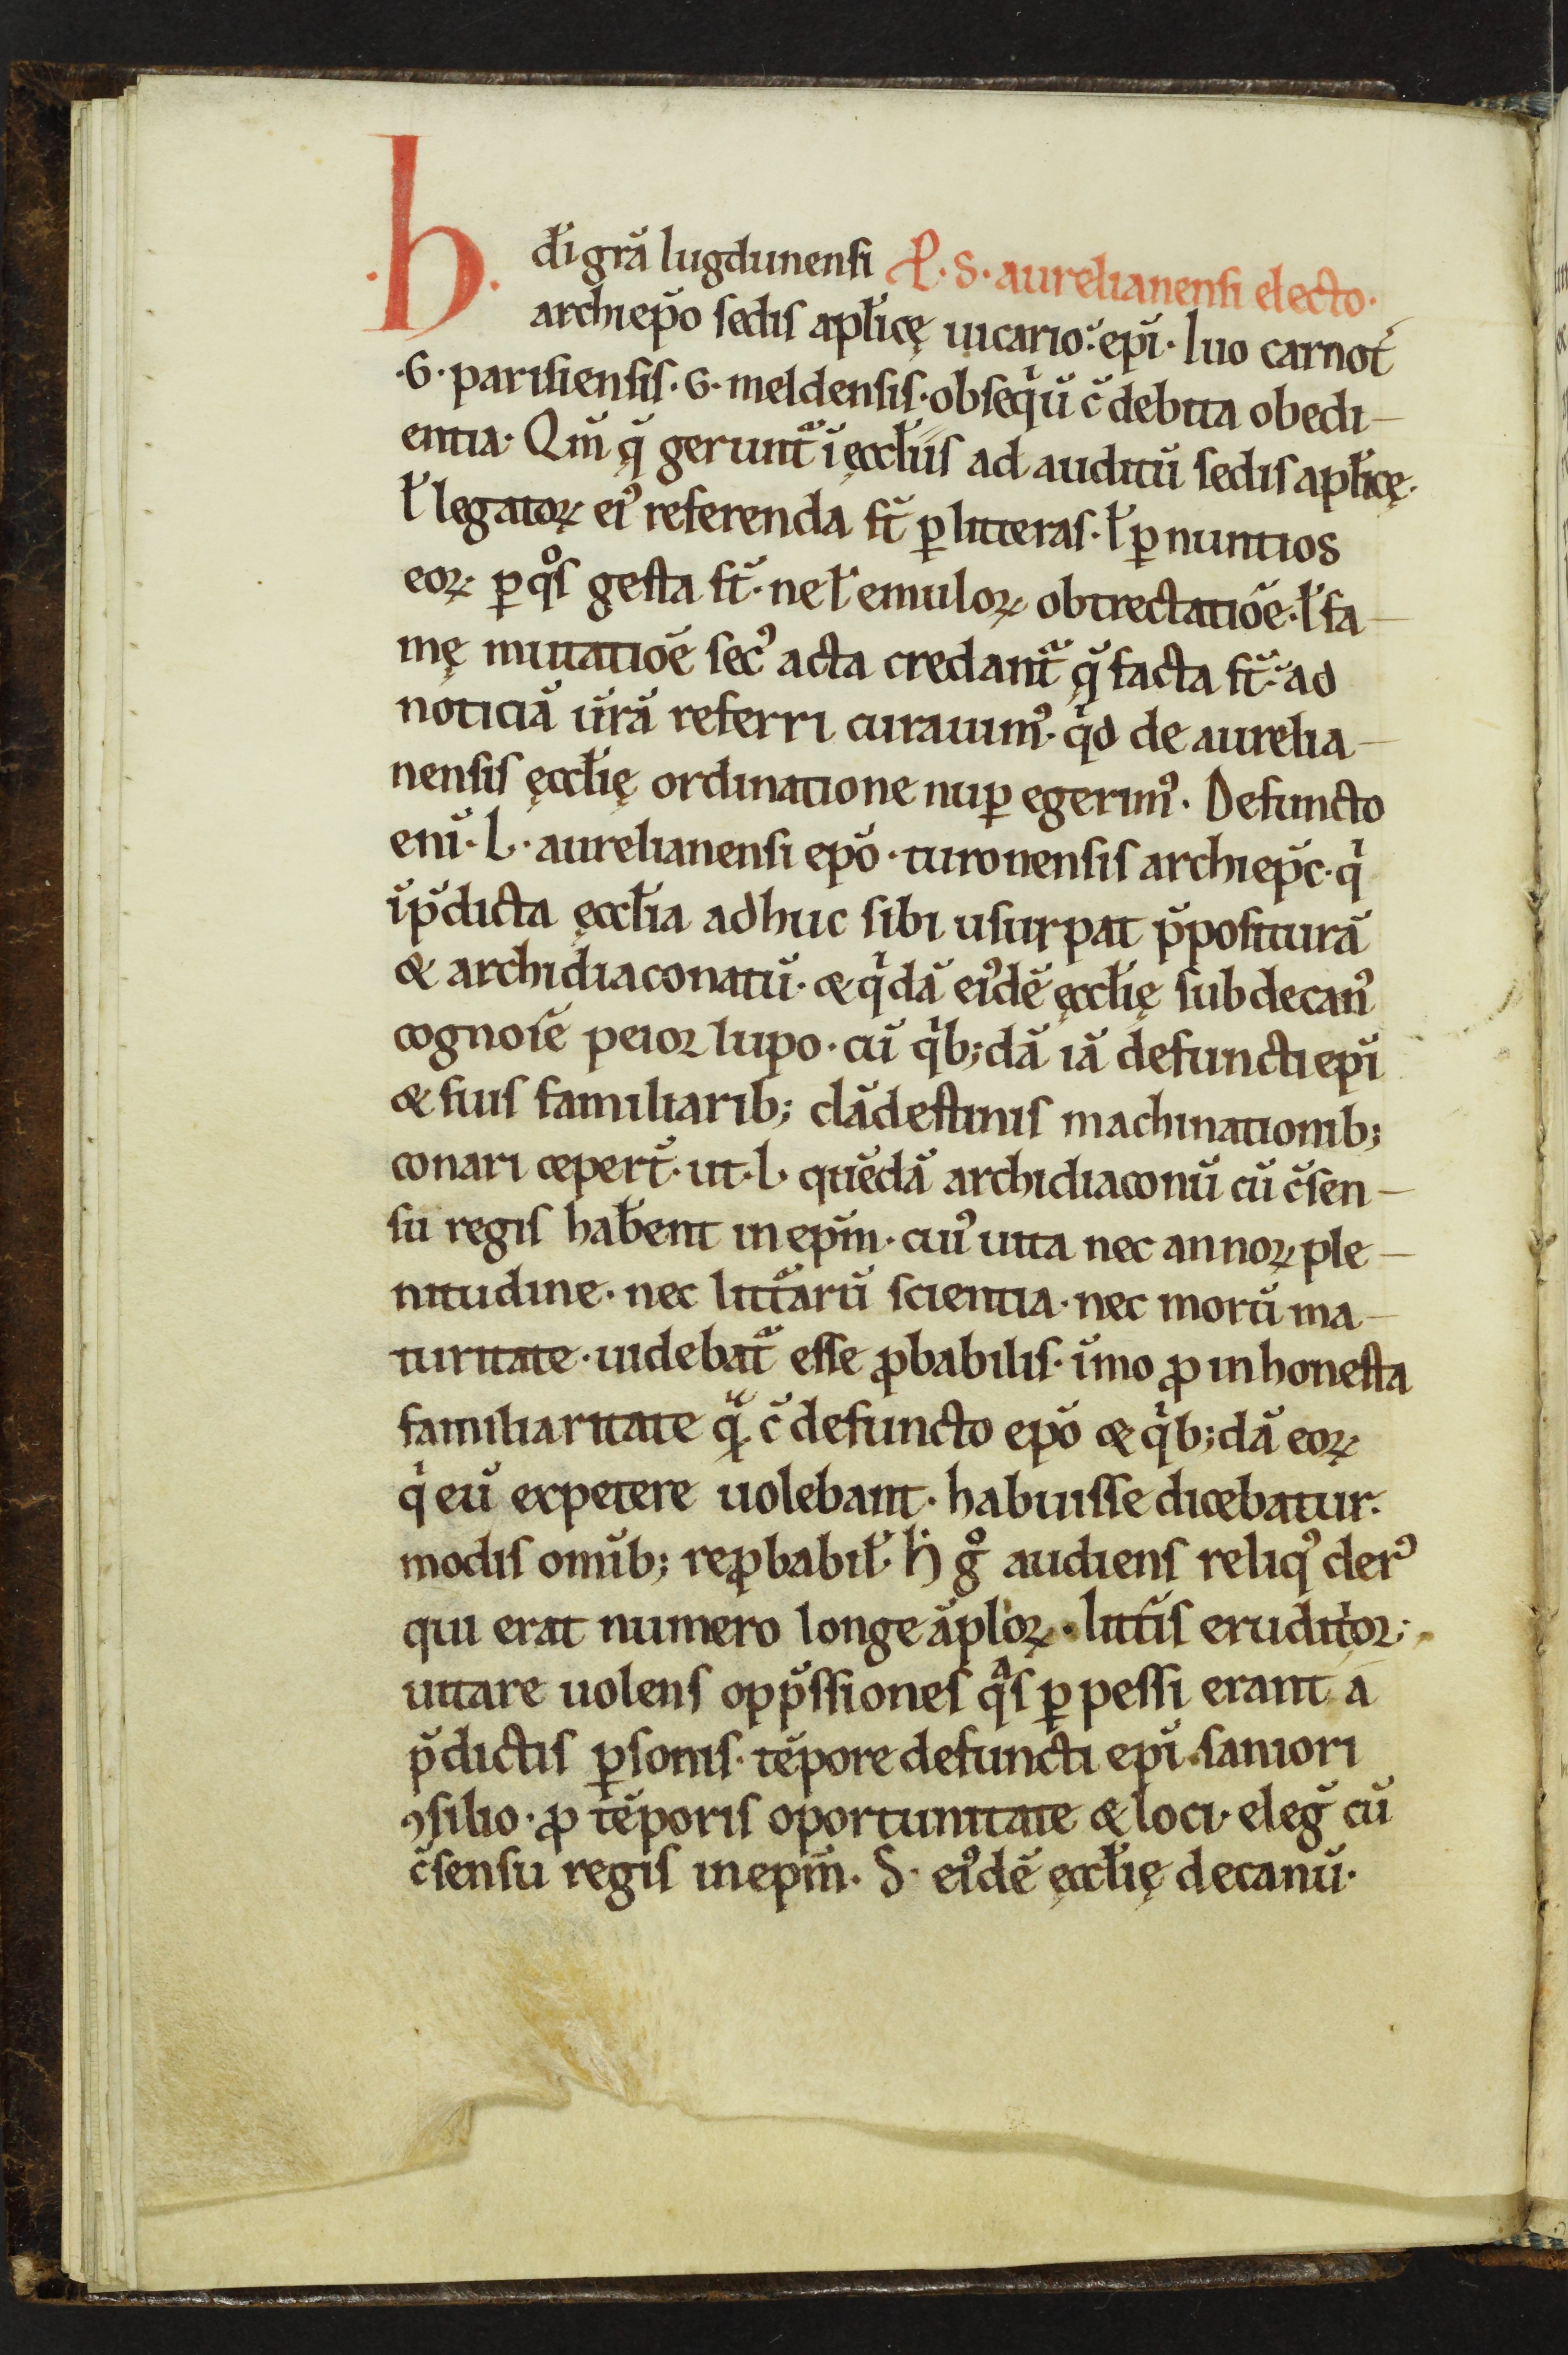 .h. dı̅ gr̅a lugdunensi P̱. S. aurelianensi electo.
archiep̅o sedis apl̅icę uicario: ep̅i. Iuo carnot̅
.G. parisiensis. G. meldensis. obseqͥu̅ c̅ debita obedi-
entia. Qm̅ q̅ gerunt᷑ i̅ ęccl̅iis ad auditu̅ sedis apl̅icę.
l̅ legatoꝝ eiꝰ referenda st̅ ꝑ litteras. l̅ ꝑ nuntios
eoꝝ ꝑ qͦs gesta st̅. ne l̅ emuloꝝ obtrectatio̅e. l̅ fa-
mę mutatio̅e secꝰ acta credant᷑ q̅ facta st̅: ad
noticia̅ ur̅a̅ referri curauimꝰ. qͥd de aurelia-
nensis ęccl̅ię ordinatione nuꝑ egerimꝰ. Defuncto
eni̅. L. aurelianensi ep̅o. turonensis archiep̅c. qͥ
i̅ p̅dicta ęccl̅ia adhuc sibi usurpat p̅positura̅
& archidiaconatu̅. & qͥda̅ eiꝰde̅ ęccl̅ię subdecanꝰ
cognoı̅e̅ peioꝛ lupo. cu̅ qͥb;da̅ ia̅ defuncti ep̅i
& suis familiarib; cla̅destinis machinationib;
conari ceper̅t. ut. I. que̅da̅ archidiaconu̅ cu̅ c̅sen-
su regis hab̅ent in ep̅m. cuiꝰ uita nec annoꝝ ple-
nitudine. nec litt͛aru̅ scientia. nec moru̅ ma-
turitate. uidebat᷑ esse ꝓbabilis. i̅mo ꝓ inhonesta
familiaritate qᷓ c̅ defuncto ep̅o & qͥb;da̅ eoꝝ
qͥ eu̅ expetere uolebant. habuisse dicebatur.
modis omı̅b; reꝓbabil̅. h̅ gͦ audiens reliqꝰ clerꝰ
qui erat numero longe a̅plioꝝ. litt͛is eruditioꝛ;
uitare uolens opp̅ssiones qͣs ꝑpessi erant a
p̅dictis ꝑsonis. te̅pore defuncti ep̅i. saniori
ꝯsilio. ꝓ te̅poris oportunitate & loci. eleg̅ cu̅
c̅sensu regis in ep̅m. S. eiꝰde̅ ęccl̅ię decanu̅.